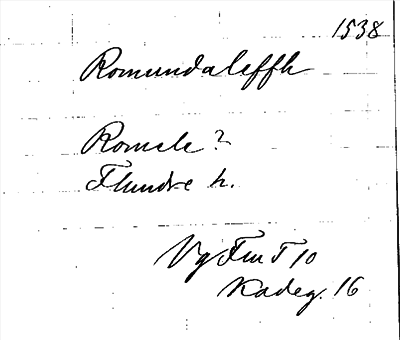 1538
Romundaleffh
Romele?
Flundre h.
Vg FmT 10
Kadeg. 16